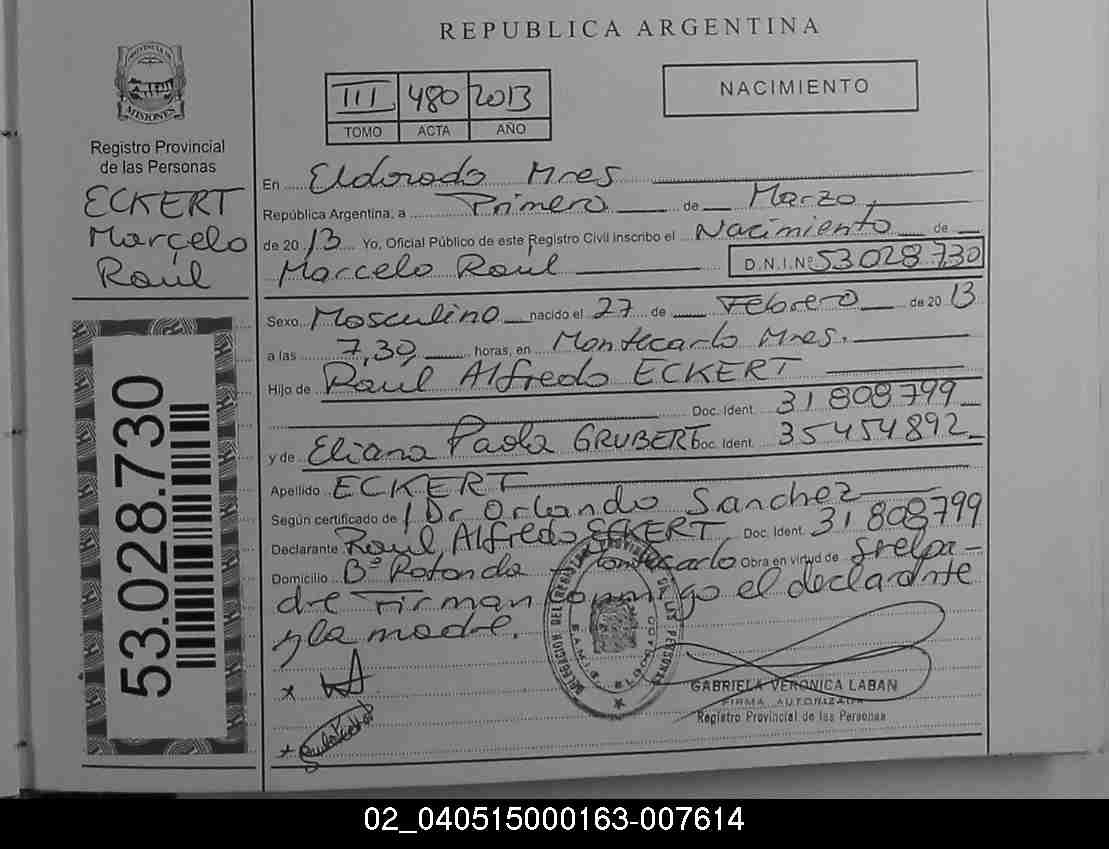 REPUBLICA ARGENTINA
PROVINCIA DE
MISIONES
Registro Provincial
de las Personas
ECKERT
Marcelo
Raúl
53.028.730
III 480 2013
TOMO ACTA AÑO
NACIMIENTO
En Eldorado Mnes
República Argentina, a Primero de Marzo,
de 2013 Yo, Oficial Público de este Registro Civil inscribo el Nacimiento de
Marcelo Raúl D.N.I.Nº 53028730
Sexo Masculino nacido el 27 de Febrero de 2013
a las 7,30, horas, en Montecarlo Mnes.
Hijo de Raúl Alfredo ECKERT
Doc. Ident. 31808799
y de Eliana Paola GRUBERT Doc. Ident. 35454892
Apellido ECKERT
Según certificado de Dr Orlando Sanchez
Declarante Raúl Alfredo ECKERT, Doc. Ident. 31808799
Domicilio Bº Rotonda - Montecarlo Obra en virtud de
El padre Firman conmigo el declarante
y la madre.
DELEGACION DEL REGISTRO PROVINCIAL DE LAS PERSONAS
ELDORADO
GABRIELA VERONICA LABAN
FIRMA AUTORIZADA
Registro Provincial de las Personas
02_040515000163-007614